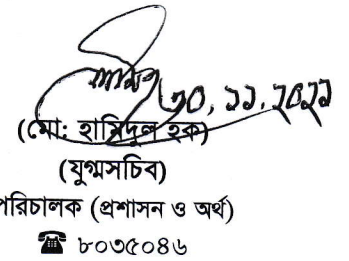 ৩০, ১১, ২০২১
(মো: হামিদুল হক)
(যুগ্মসচিব)
পরিচালক (প্রশাসন ও অর্থ)
☎ ৮০৩৫০৪৬